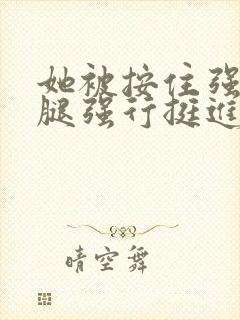 她被按住强
腿强行挺进
晴空舞